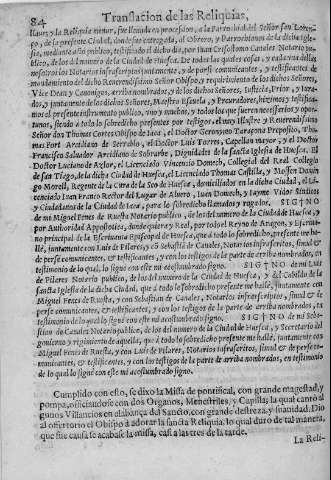 84 Translacion de las Reliquias,
llaues, y la Reliquia menor, fue lleuada en procession, a la Parrochial del Señor san Loren-
ço, de la presente Ciudad, donde fue entregada, al Obrero, y Parrochianos de la dicha Igle-
sia, mediante acto publico, testificado el dicho dia, por Iuan Crisostomo Canales Notario pu-
blico, de los del numero de la Ciudad de Huesca. De todas las quales cosas, y cada vna dellas
nosotros los Notarios infrascriptos juntamente, y de por si comunicantes, y testificantes, de
mandamiento del dicho Reuerendissimo Señor Obispo, y requirimiento de los dichos Señores,
Vice Dean y Canonigos, arriba nombrados, y de los dichos Señores, Iusticia, Prior, y Iura-
dos, y juntamente de los dichos Señores, Maestro Escuela, y Procuradores, hizimos y testifica-
mos el presente instrumento publico, vno y muchos, y todos los que fuessen necessarios y op-
portunos, siendo a todo lo sobredicho presentes por testigos, el muy Illustre y Reuerendissimo
Señor don Thomas Cortes Obispo de Iaca, el Doctor Geronymo Taraçona Preposito, Tho-
mas Fort Arcidiano de Serrablo, el Doctor Luis Torres, Capellan mayor, y el Doctor
Francisco Saluador Arcidiano de Sobrarbe, Dignidades de la sancta Iglesia de Huesca. El
Doctor Luciano de Aylor, el Licenciado Vincencio Domech, Collegial del Real Collegio
de san Tiego, de la dicha Ciudad de Huesca, el Licenciado Thomas Castilla, y Mossen Domin
go Morell, Regente de la Cura de la Seo de Huesca, domiciliados en la dicha Ciudad, el Li-
cenciado Iuan Franco Rector del Lugar de Aluero, Iuan Domech, y Iayme Vidor Sindicos
y Ciudadanos de la Ciudad de Iaca, para lo sobredicho llamados y rogados. SIG†NO
de mi Miguel Fenes de Ruesta Notario publico, de los del numero de la Ciudad de Huesca, y
por Authoridad Appostolica, donde quiere, y Real, por todo el Reyno de Aragon, y Escriuano
principal de la Escriuania Episcopal de Huesca, que a todo lo sobredicho, presente me ha-
llé, juntamente con Luis de Pilares, y Sebastian de Canales, Notarios infrascritos, simul &
de per se comunicantes, & testificantes, y con los testigos de la parte de arriba nombrados, en
testimonio de lo qual, lo signe con este mi acostumbrado signo. SIG†NO de mi Luis
de Pilares Notario publico, de los del numero de la Ciudad de Huesca, y del Cabildo de la
sancta Iglesia de la dicha Ciudad, que a todo lo sobredicho presente me hallé, juntamente con
Miguel Fenes de Ruesta, y con Sebastian de Canales, Notarios infrascritos, simul & de
perse comunicantes, & testificantes, y con los testigos de la parte de arriba nombrados, en
testimonio de lo qual lo signe con este mi acostumbrado signo. SIG†NO de mi Sebas-
tian de Canales Notario publico, de los del numero de la Ciudad de Huesca, y Secretario del
gouierno y regimiento de aquella, que a todo lo sobredicho presente me hallé, juntamente con
Miguel Fenes de Ruesta, y con Luis de Pilares, Notarios infrascritos, simul & de per se co-
municantes, & testificantes, y con los testigos de la parte de arriba nombrados, en testimonio
de lo qual lo signe con este mi acostumbrado signo.
Cumplido con esto, se dixo la Missa de pontifical, con grande magestad, y
pompa, officiandose con dos Organos, Menestriles, y Capilla; la qual cantó al
gunos Villancios en alabança del Sancto, con grande destreza, y suauidad. Dio
al offertorio el Obispo à adorar la sancta Reliquia: lo qual duro de tal manera,
que fue causa se acabase la missa, casi a las tres de la tarde.
La Reli-